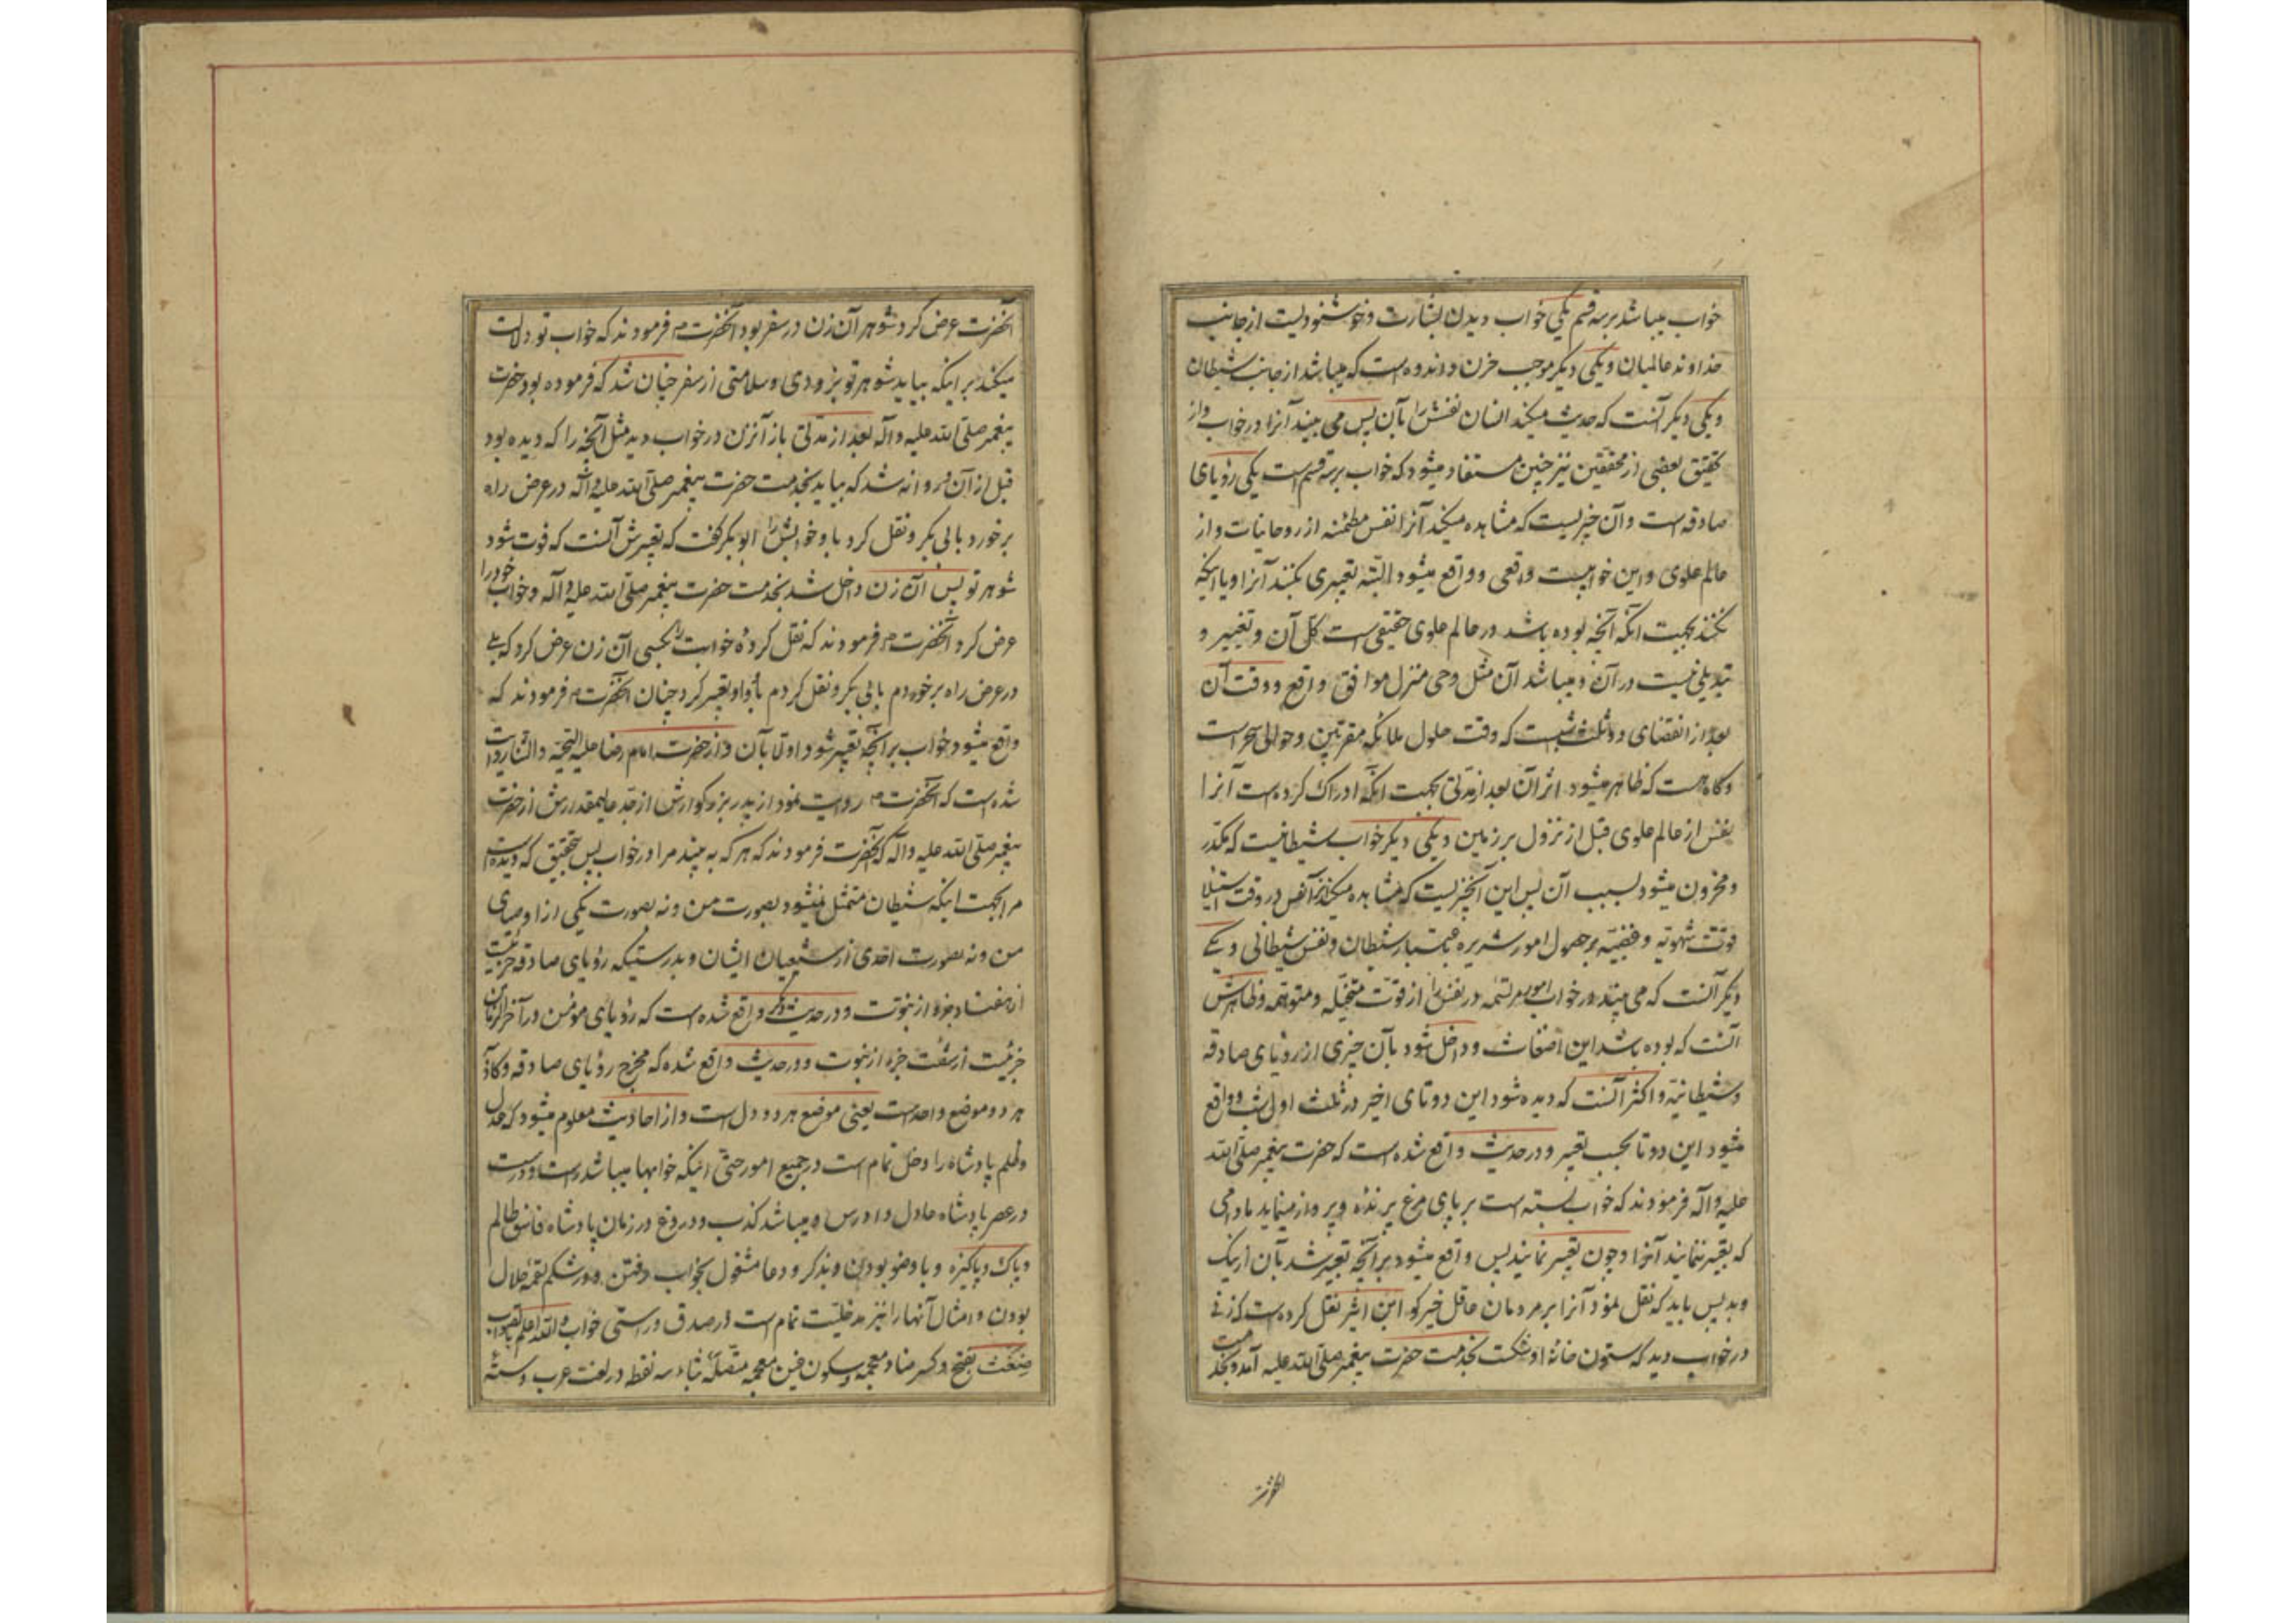 خواب میباشد بر سه قسم یکی خواب دیدن بشارت و خوشنودیست از جانب
خداوند عالمیان و یکی دیگر موجب حزن و اندوه است که میباشد از جانب شیطان
و یکی دیگر آنست که حدیث میکند انسان نفسش را بآن پس می بیند آنرا در خواب و از
تحقیق بعضی از محققین نیز چنین مستفاد میشود که خواب بر سه قسم است یکی رؤیای
صادقه است و آن چیزیست که مشاهده میکند آنرا نفس مطمئنه از روحانیات و از
عالم علوی و این خوابیست واقعی و واقع میشود البته تعبیری بکنند آنرا و یا اینکه
نکنند بجهت آنکه آنچه بوده باشد در عالم علوی حقیقی است کل آن و تغییر و
تبدیلی نیست در آن و میباشد آن مثل وحی منزل موافق واقع و وقت آن
بعد از انقضای دو ثلث شبست که وقت حلول ملائکه مقربین و حوالی سحر است
و گاه هست که ظاهر میشود اثر آن بعد از مدتی بجهت آنکه ادراک کرده است آنرا
نفس از عالم علوی قبل از نزول بر زمین و یکی دیگر خواب شیطانیست که مکدر
و محزون میشود بسبب آن پس این آنچیزیست که مشاهده میکند آنرا نفس در وقت استیلا
قوت شهویه و غضبیه بر حصول امور شریره باعتبار شیطان و نفس شیطانی و یکی
دیگر آنست که می بیند در خواب امور مرتسمه در نفس را از قوت متخیله و متوهمه و ظاهرش
آنست که بوده باشد این اضغاث و داخل شود بآن چیزی از رؤیای صادقه
و شیطانیه و اکثر آنست که دیده شود این دو تای اخیر در ثلث اول شب و واقع
میشود این دو تا بحسب تعبیر و در حدیث واقع شده است که حضرت پیغمبر صلی الله
علیه و آله فرمودند که خواب بسته است بر پای مرغ پرنده و پرواز مینماید مادامی
که تعبیر ننمایند آنرا و چون تعبیر نمایند پس واقع میشود بر آنچه تعبیر شد بآن از نیک
و بد پس باید که نقل نمود آنرا بر مردمان عاقل خیرگو ابن اثیر نقل کرده است که زنی
در خواب دید که ستون خانه او شکست بخدمت حضرت پیغمبر صلی الله علیه آمد و بخدمت
آنحضرت
آنحضرت عرض کرد شوهر آن زن در سفر بود آنحضرت ص فرمودند که خواب تو دلالت
میکند بر اینکه بیاید شوهر تو بزودی و سلامتی از سفر چنان شد که فرموده بود حضرت
پیغمبر صلی الله علیه و آله بعد از مدتی باز آنزن در خواب دید مثل آنچه را که دیده بود
قبل از آن و روانه شد که بیاید بخدمت حضرت پیغمبر صلی الله علیه و آله در عرض راه
برخورد بابی بکر و نقل کرد باو خوابش را ابو بکر گفت که تعبیرش آنست که فوت شود
شوهر تو پس آن زن داخل شد بخدمت حضرت پیغمبر صلی الله علیه و آله و خواب خود را
عرض کرد آنحضرت ص فرمودند که نقل کردۀ خوابت را بکسی آن زن عرض کرد که بلی
در عرض راه برخوردم بابی بکر و نقل کردم باو و او تعبیر کرد چنان آنحضرت ص فرمودند که
واقع میشود خواب بر آنچه تعبیر شود اولا بآن و از حضرت امام رضا علیه التحیة و الثنا روایت
شده است که آنحضرت ص روایت نمود از پدر بزرگوارش از جد عالیمقدارش از حضرت
پیغمبر صلی الله علیه و آله که آنحضرت فرمودند که هر که به بیند مرا در خواب پس تحقیق که دیده است
مرا بجهت اینکه شیطان متمثل نمیشود بصورت من و نه بصورت یکی از اوصیای
من و نه بصورت احدی از شیعیان ایشان و بدرستیکه رؤیای صادقه جزئیست
از هفتاد جزو از نبوت و در حدیث دیگر واقع شده است که رؤیای مؤمن در آخر الزمان
جزئیست از هفت جزء از نبوت و در حدیث واقع شده که مخرج رؤیای صادقه و کاذبه
هر دو موضع واحد است یعنی موضع هر دو دل است و از احادیث معلوم میشود که عدل
و ظلم پادشاه را دخل تمام است در جمیع امور حتی اینکه خوابها میباشد راست و درست
در عصر پادشاه عادل و دادرس و میباشد کذب و دروغ در زمان پادشاه فاسق ظالم
و پاک و پاکیزه و با وضو بودن و بذکر و دعا مشغول بخواب رفتن و در شکم لقمه حلال
بودن و امثال آنها را نیز مدخلیت تمام است در صدق و راستی خواب و الله اعلم بالصواب
ضغث بفتح و کسر ضاد معجمه و سکون غین معجمه متصله بثاء سه نقطه در لغت عرب دسته